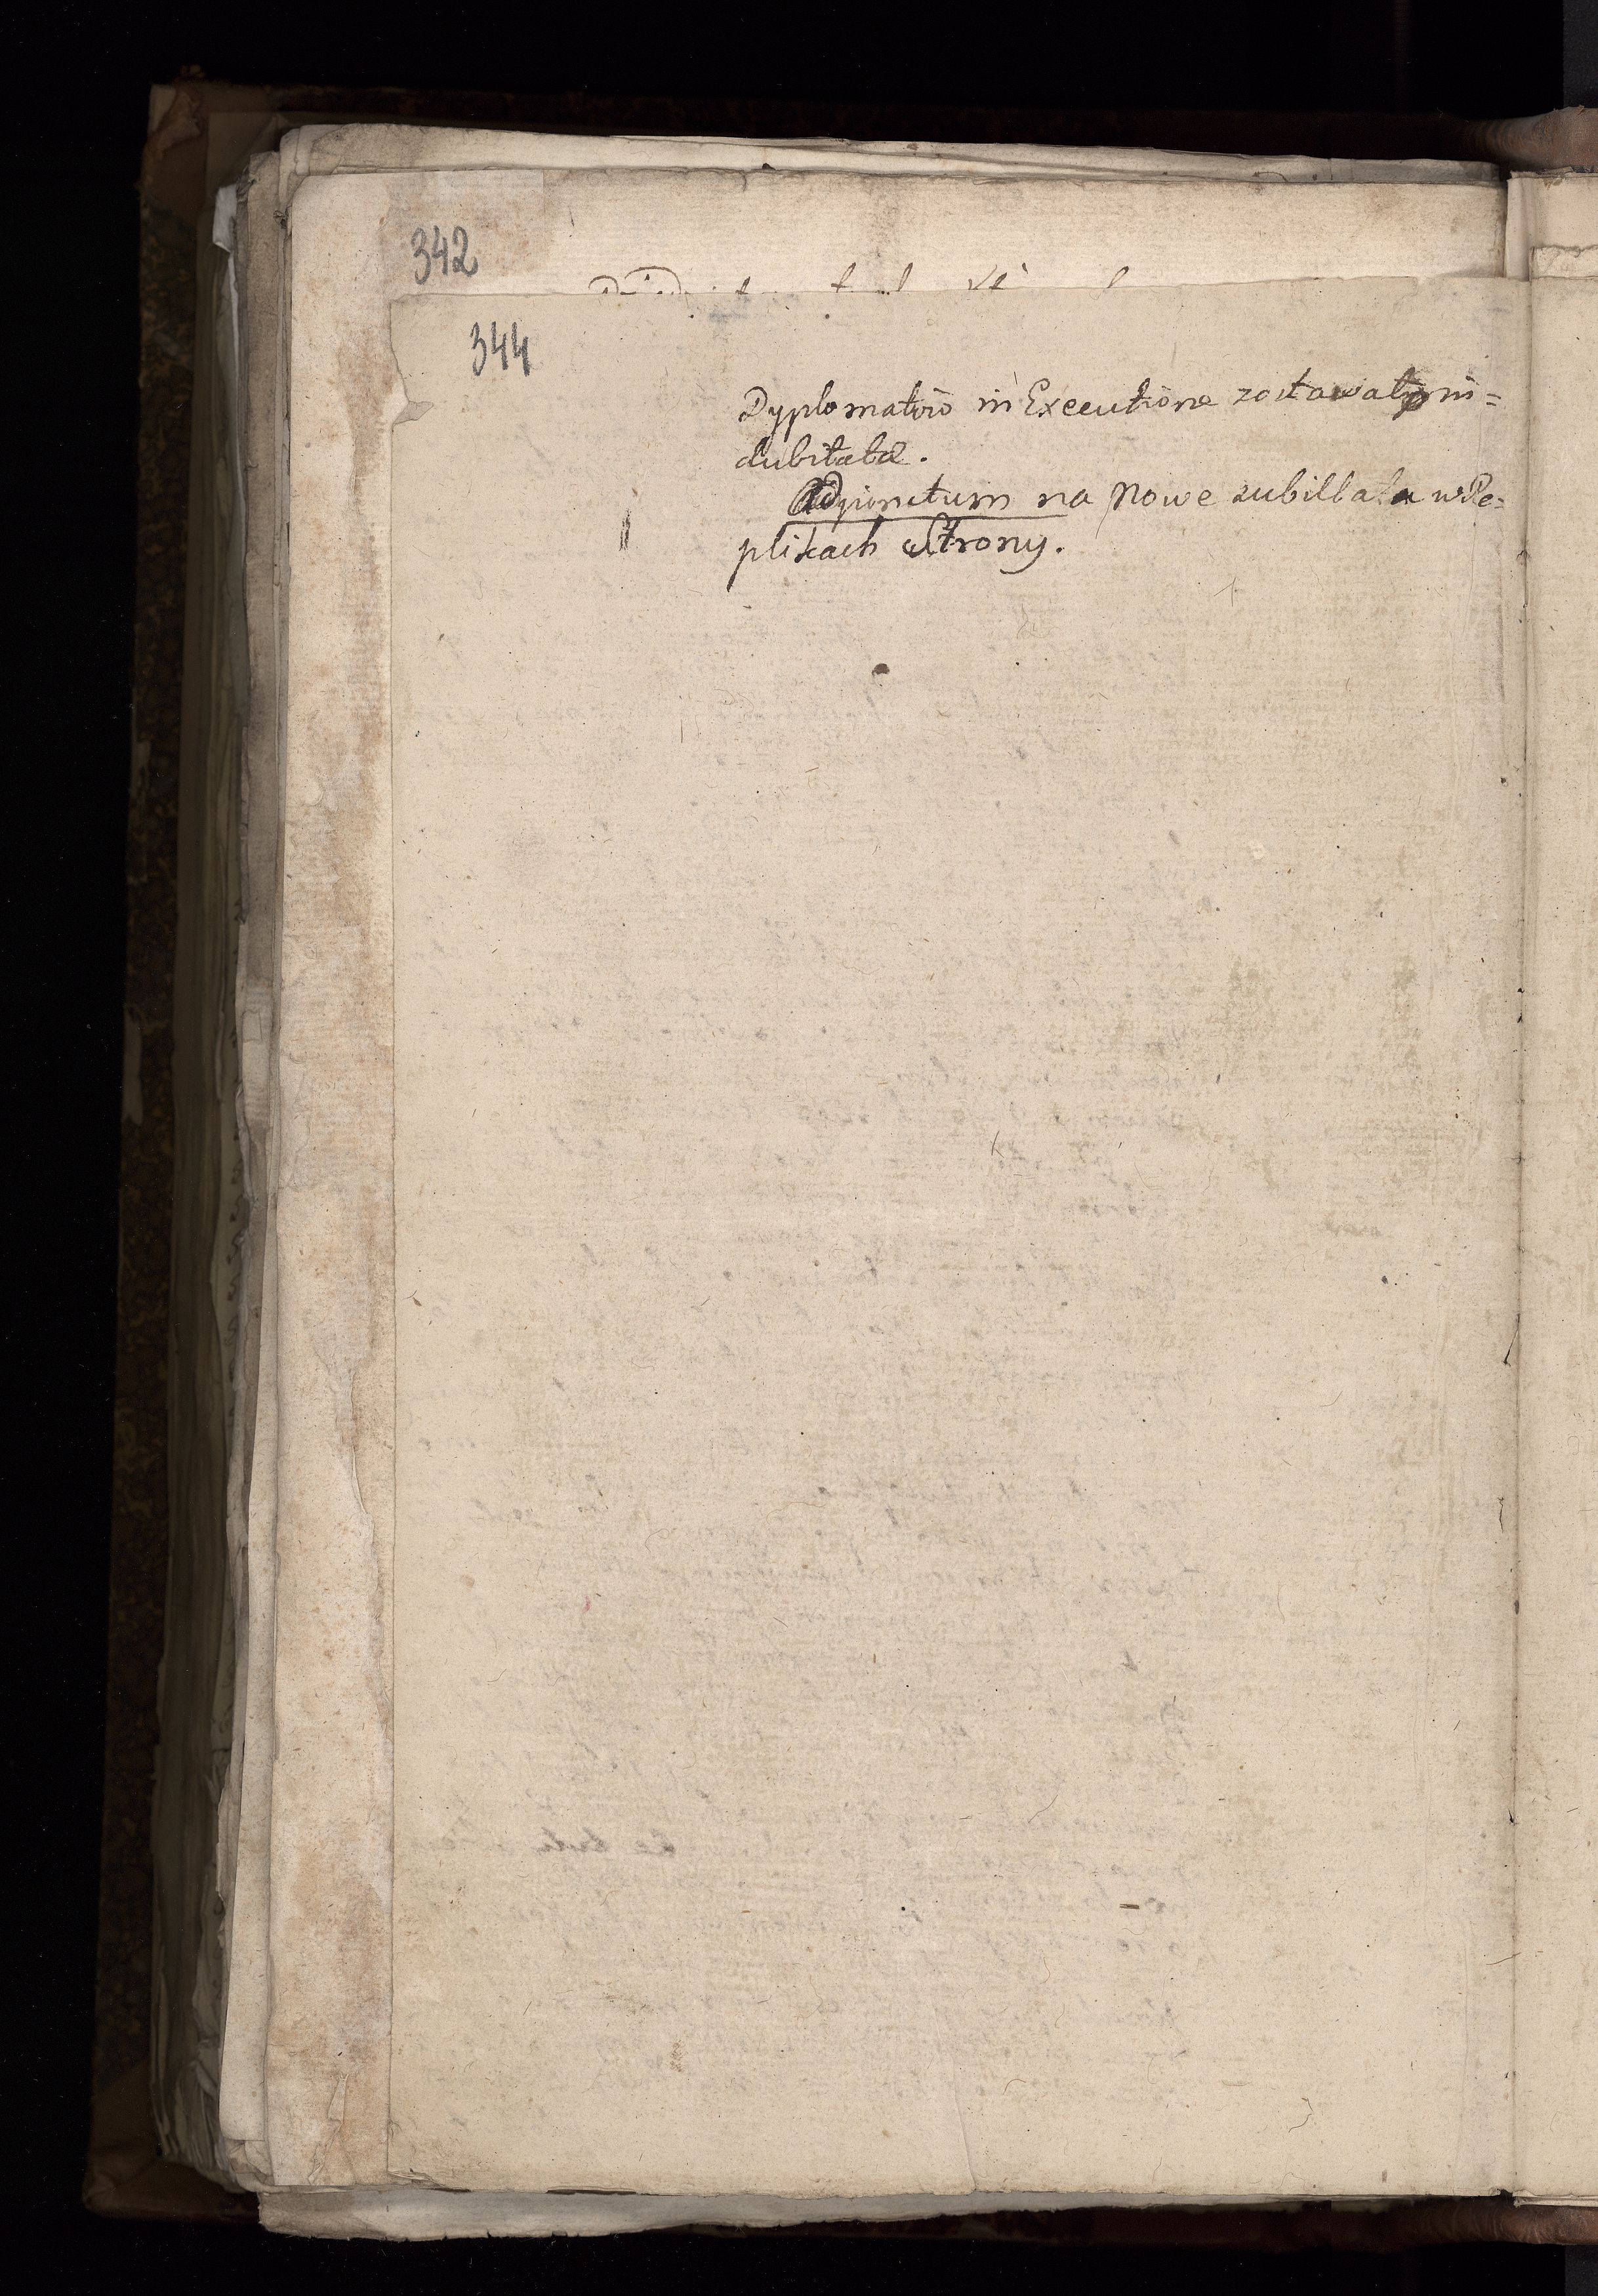 342
344
Dyplomatów in Executione zostawały in=
dubitatæ.
Adjunctum na Nowe subillata w Re=
plikach Strony.